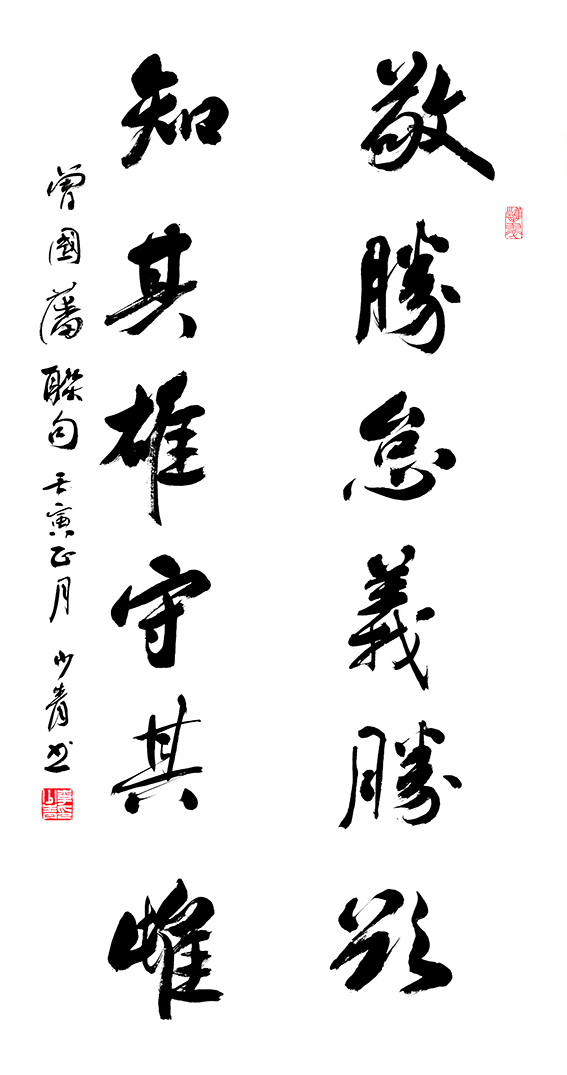 敬勝怠義勝欲
知其雄守其雌
曾國藩聯句壬寅正月少青书